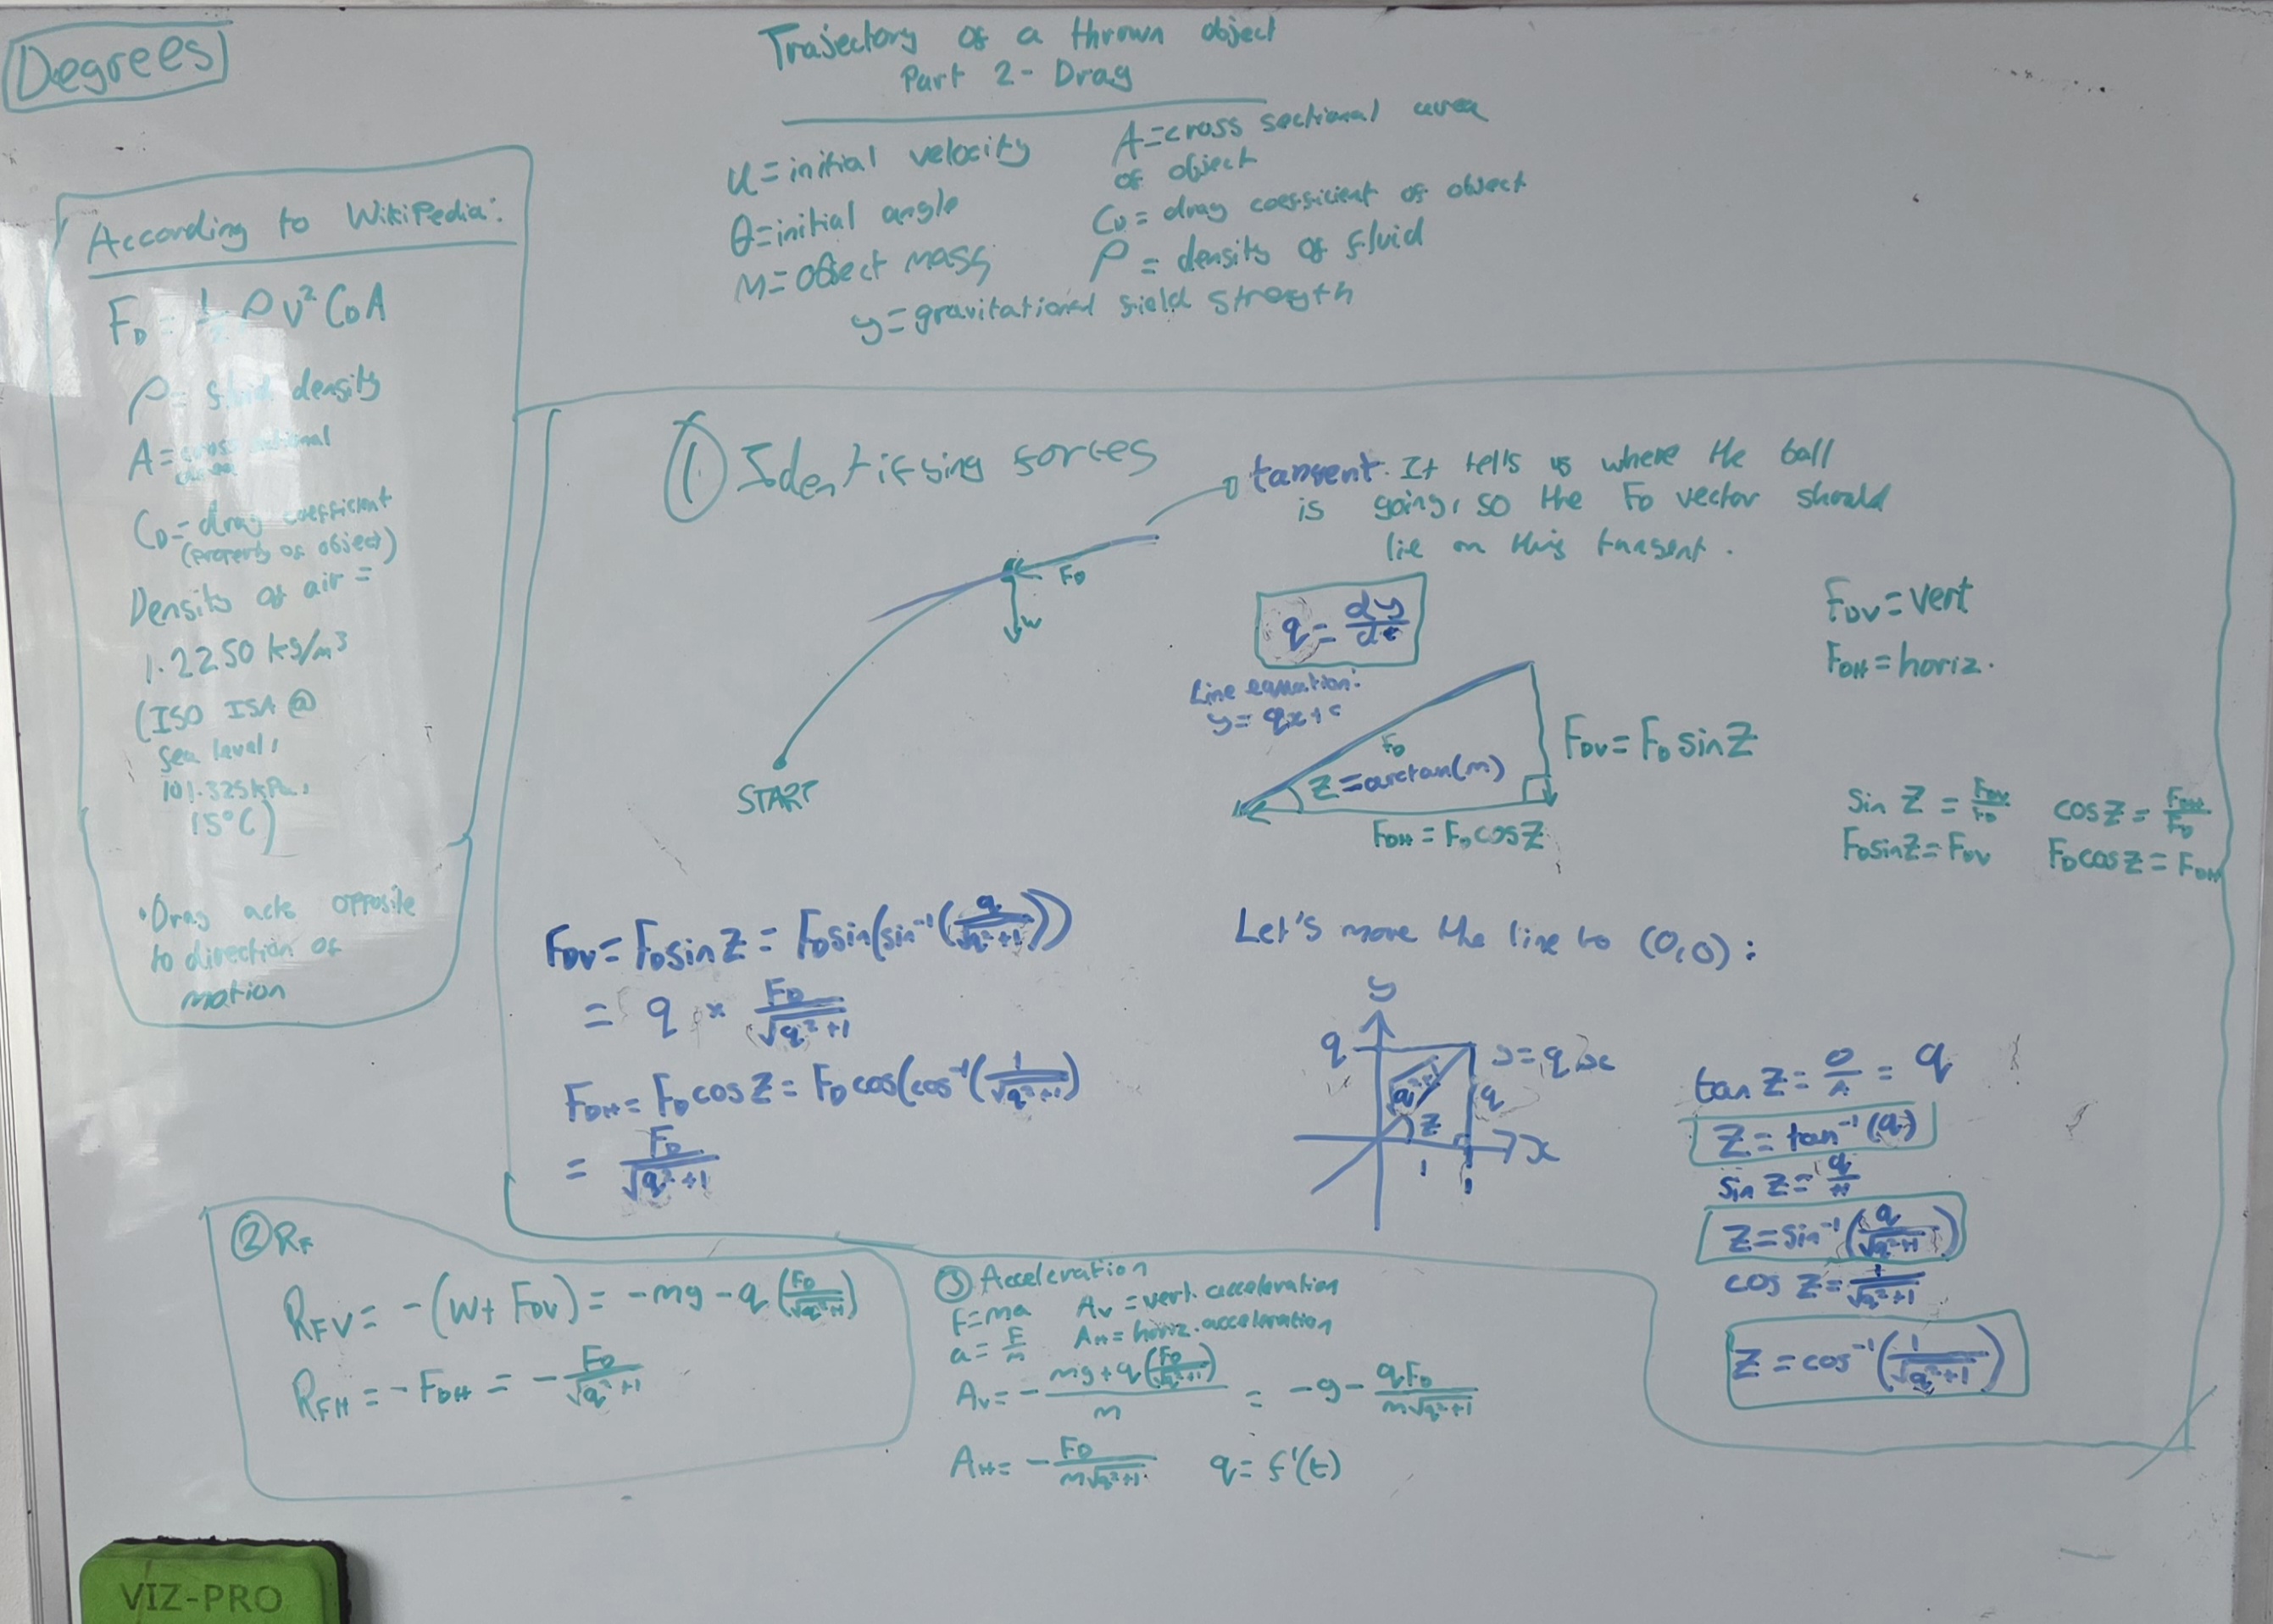 Degrees
Trajectory of a thrown object
Part 2 - Drag
u = initial velocity
θ = initial angle
m = object mass
A = cross sectional area
of object
C_D = drag coefficient of object
ρ = density of fluid
g = gravitational field strength
According to WikiPedia:
F_D = 1/2 ρ v² C_D A
ρ = fluid density
A = cross sectional
area
C_D = drag coefficient
(property of object)
Density of air =
1.2250 kg/m³
(ISO ISA @
sea level,
101.325kPa,
15°C)
• Drag acts opposite
to direction of
motion
① Identifying forces
tangent. It tells us where the ball
is going, so the F_D vector should
lie on this tangent.
F_D
W
START
q = dy/dt
Line equation:
y = qx + c
F_DV = vert
F_DH = horiz.
F_D
Z = arctan(m)
F_DV = F_D sin Z
F_DH = F_D cos Z
sin Z = F_DV/F_D
F_D sin Z = F_DV
cos Z = F_DH/F_D
F_D cos Z = F_DH
F_DV = F_D sin Z = F_D sin(sin⁻¹(q/√(q²+1)))
= q × F_D/√(q²+1)
F_DH = F_D cos Z = F_D cos(cos⁻¹(1/√(q²+1))
= F_D/√(q²+1)
Let's move the line to (0,0):
y
q
y = qx
√(q²+1)
q
Z
x
1
1
tan Z = O/A = q
Z = tan⁻¹(q)
sin Z = q/H
Z = sin⁻¹(q/√(q²+1))
cos Z = 1/√(q²+1)
Z = cos⁻¹(1/√(q²+1))
② R_F
R_FV = -(W + F_DV) = -mg - q(F_D/√(q²+1))
R_FH = -F_DH = -F_D/√(q²+1)
③ Acceleration
F = ma
A_V = vert. acceleration
a = F/m
A_H = horiz. acceleration
A_V = -(mg + q(F_D/√(q²+1)))/m = -g - qF_D/(m√(q²+1))
A_H = -F_D/(m√(q²+1))
q = f'(t)
VIZ-PRO